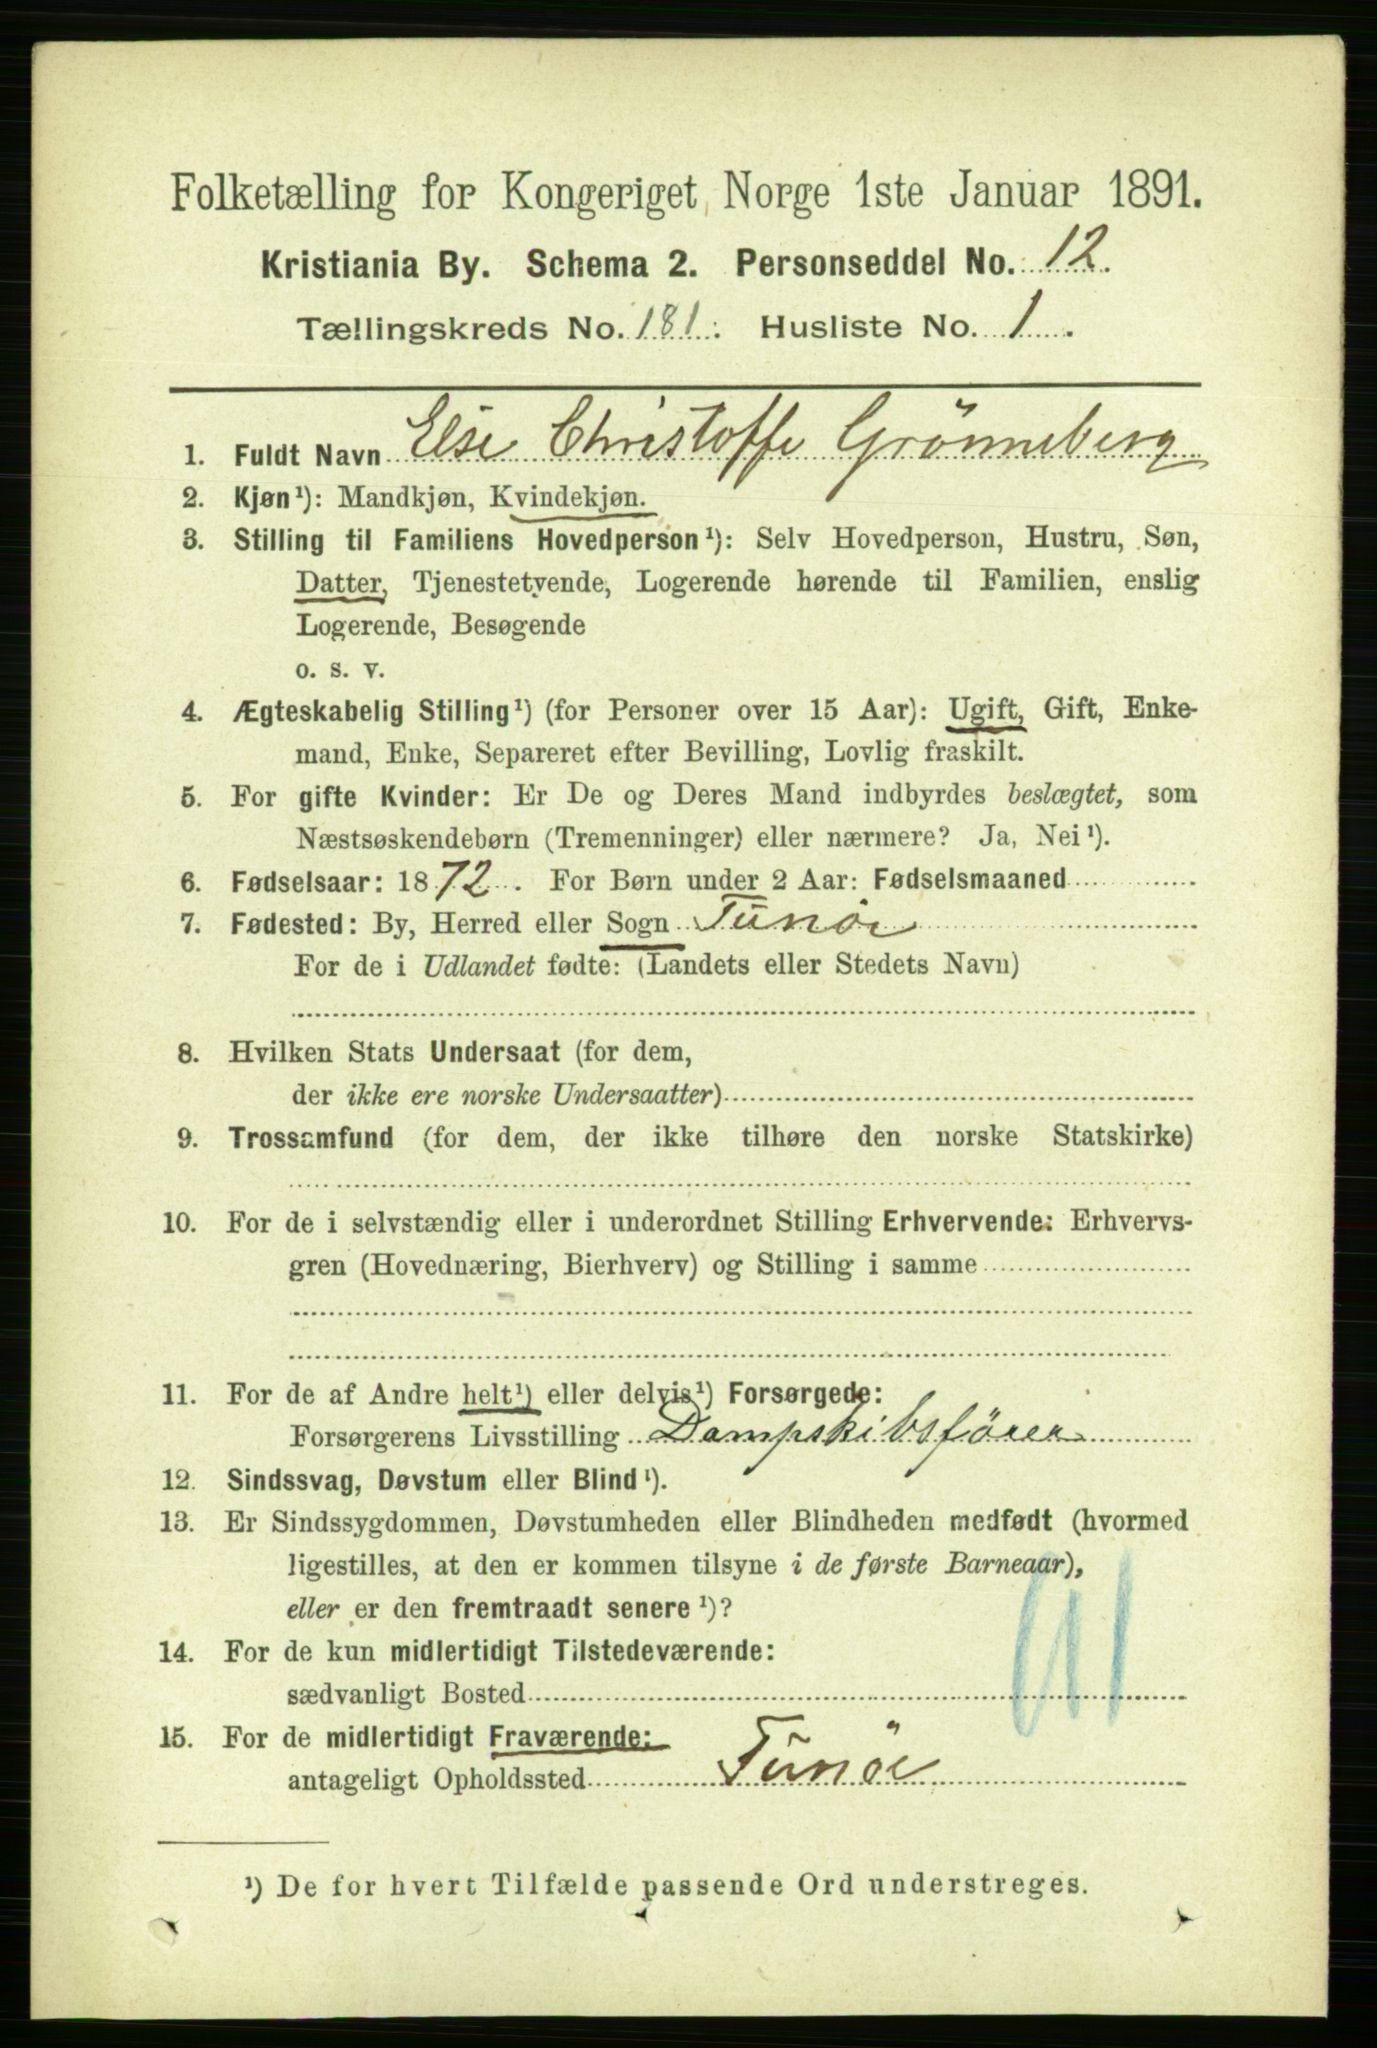 Folketælling for Kongeriget Norge 1ste Januar 1891.
Kristiania By. Schema 2. Personseddel No. 12.
Tællingskreds No. 181. Husliste No. 1.
1. Fuldt Navn Else Christoffe Grönneberg
2. Kjøn¹): Mandkjøn, Kvindekjøn.
3. Stilling til Familiens Hovedperson¹): Selv Hovedperson, Hustru, Søn,
Datter, Tjenestetyende, Logerende hørende til Familien, enslig
Logerende, Besøgende
o. s. v.
4. Ægteskabelig Stilling¹) (for Personer over 15 Aar): Ugift, Gift, Enke-
mand, Enke, Separeret efter Bevilling, Lovlig fraskilt.
5. For gifte Kvinder: Er De og Deres Mand indbyrdes beslægtet, som
Næstsøskendebørn (Tremenninger) eller nærmere? Ja, Nei¹).
6. Fødselsaar: 1872. For Børn under 2 Aar: Fødselsmaaned
7. Fødested: By, Herred eller Sogn Tunöe
For de i Udlandet fødte: (Landets eller Stedets Navn)
8. Hvilken Stats Undersaat (for dem,
der ikke ere norske Undersaatter)
9. Trossamfund (for dem, der ikke tilhøre den norske Statskirke)
10. For de i selvstændig eller i underordnet Stilling Erhvervende: Erhvervs-
gren (Hovednæring, Bierhverv) og Stilling i samme
11. For de af Andre helt¹) eller delvis¹) Forsørgede:
Forsørgerens Livsstilling Dampskibsförer
12. Sindssvag, Døvstum eller Blind¹).
13. Er Sindssygdommen, Døvstumheden eller Blindheden medfødt (hvormed
ligestilles, at den er kommen tilsyne i de første Barneaar),
eller er den fremtraadt senere¹)?
14. For de kun midlertidigt Tilstedeværende:
sædvanligt Bosted
15. For de midlertidigt Fraværende:
antageligt Opholdssted Tunöe
¹) De for hvert Tilfælde passende Ord understreges.